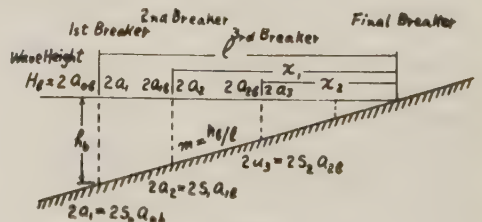 1st Breaker 2nd Breaker 3rd Breaker Final Breaker
l
Wave Height
H_b = 2a_0b 2a_1 2a_1b 2a_2 2a_2b 2a_3
x_1
x_2
h_b
m = h_b/l
2a_3 = 2S_2 a_2b
2a_2 = 2S_1 a_1b
2a_1 = 2S_0 a_0b